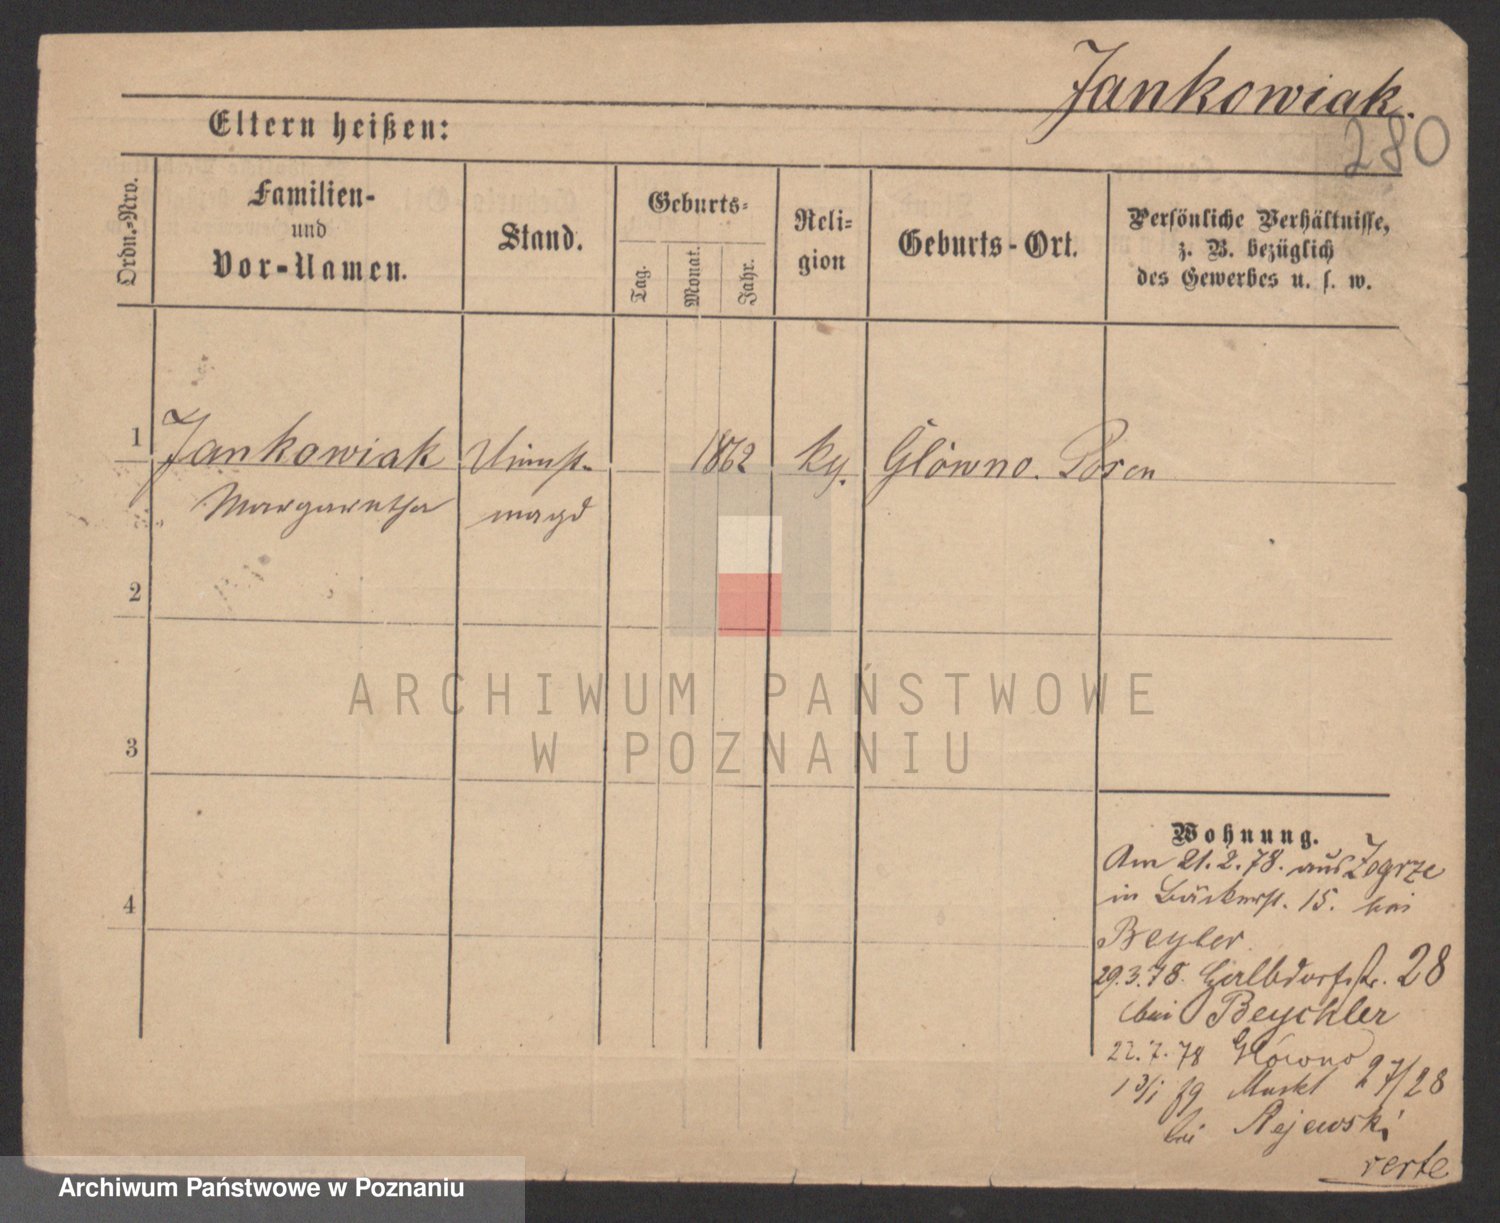 Jankowiak.
280
Eltern heißen:
Ordn.-Nro.
Familien-
und
Vor-Namen.
Stand.
Geburts-
Tag.
Monat.
Jahr.
Reli-
gion
Geburts-Ort.
Persönliche Verhältnisse,
z. B. bezüglich
des Gewerbes u. s. w.
1 Jankowiak 1862 Glówno. Posen
Margaretha magd
2
ARCHIWUM PAŃSTWOWE
W POZNANIU
3
4
Wohnung.
Am 21.2.78. aus Zegrze
in Bäckerst. 15. bei
Beyler.
29.3.78. Halbdorfstr. 28
bei Beychler
22.7.78 Glówno
Markt 27/28
bei Rejewski
verte
Archiwum Państwowe w Poznaniu